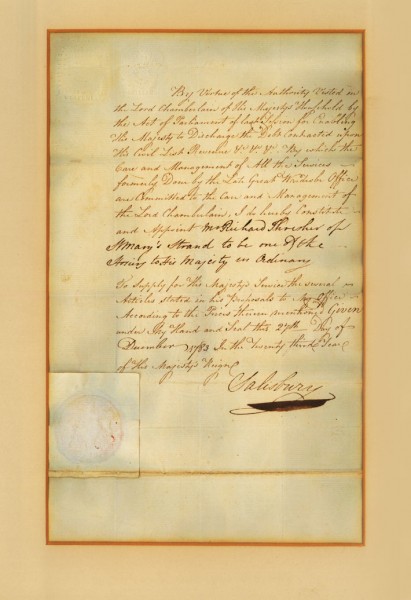 By Virtue of the Authority Vested in
the Lord Chamberlain of His Majestys Household by
the Act of Parliament of last Session for Enabling
His Majesty to Discharge the Debt Contracted upon
the Civil List Revenue &c &c &c By which the
Care and Management of All the Services
formerly Done by the Late Great Wardrobe Office
are Committed to the Care and Management of
the Lord Chamberlain, I do hereby Constitute
and Appoint Mr Richard Thresher of
St Mary's Strand to be one of the
to His Majesty in Ordinary
To Supply for His Majesty's Service the several
Articles stated in his Proposals to My Office
According to the Prices therein mentioned Given
under My Hand and Seal this 27th Day of
December 1783 In the twenty third Year
of His Majesty's Reign
Salisbury